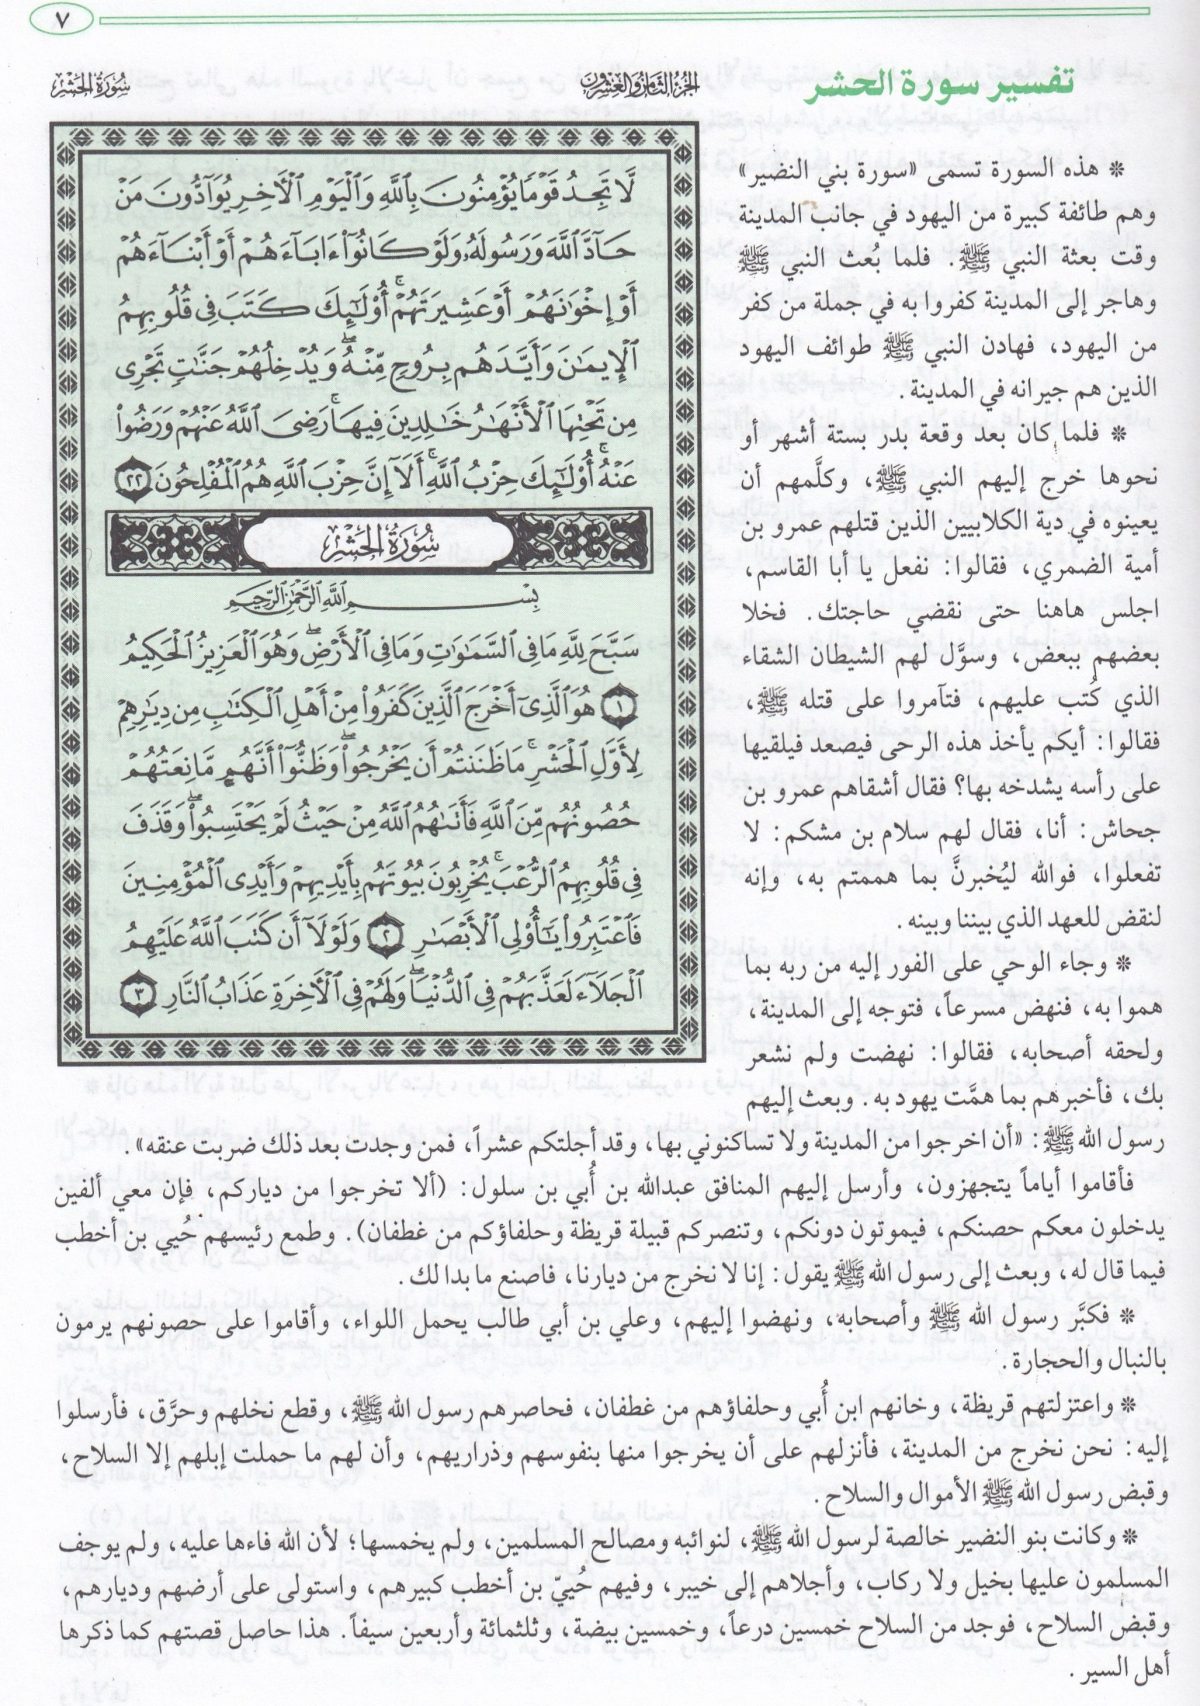 ٧
تفسير سورة الحشر
الجزء الثامن والعشرون
سورة الحشر
لَّا تَجِدُ قَوْمًا يُؤْمِنُونَ بِٱللَّهِ وَٱلْيَوْمِ ٱلْـَٔاخِرِ يُوَآدُّونَ مَنْ
حَآدَّ ٱللَّهَ وَرَسُولَهُۥ وَلَوْ كَانُوٓا۟ ءَابَآءَهُمْ أَوْ أَبْنَآءَهُمْ
أَوْ إِخْوَٰنَهُمْ أَوْ عَشِيرَتَهُمْ ۚ أُو۟لَٰٓئِكَ كَتَبَ فِى قُلُوبِهِمُ
ٱلْإِيمَٰنَ وَأَيَّدَهُم بِرُوحٍ مِّنْهُ ۖ وَيُدْخِلُهُمْ جَنَّٰتٍ تَجْرِى
مِن تَحْتِهَا ٱلْأَنْهَٰرُ خَٰلِدِينَ فِيهَا ۚ رَضِىَ ٱللَّهُ عَنْهُمْ وَرَضُوا۟
عَنْهُ ۚ أُو۟لَٰٓئِكَ حِزْبُ ٱللَّهِ ۚ أَلَآ إِنَّ حِزْبَ ٱللَّهِ هُمُ ٱلْمُفْلِحُونَ ٢٢
سورة الحشر
بِسْمِ ٱللَّهِ ٱلرَّحْمَٰنِ ٱلرَّحِيمِ
سَبَّحَ لِلَّهِ مَا فِى ٱلسَّمَٰوَٰتِ وَمَا فِى ٱلْأَرْضِ ۖ وَهُوَ ٱلْعَزِيزُ ٱلْحَكِيمُ
١ هُوَ ٱلَّذِىٓ أَخْرَجَ ٱلَّذِينَ كَفَرُوا۟ مِنْ أَهْلِ ٱلْكِتَٰبِ مِن دِيَٰرِهِمْ
لِأَوَّلِ ٱلْحَشْرِ ۚ مَا ظَنَنتُمْ أَن يَخْرُجُوا۟ ۖ وَظَنُّوٓا۟ أَنَّهُم مَّانِعَتُهُمْ
حُصُونُهُم مِّنَ ٱللَّهِ فَأَتَىٰهُمُ ٱللَّهُ مِنْ حَيْثُ لَمْ يَحْتَسِبُوا۟ ۖ وَقَذَفَ
فِى قُلُوبِهِمُ ٱلرُّعْبَ ۚ يُخْرِبُونَ بُيُوتَهُم بِأَيْدِيهِمْ وَأَيْدِى ٱلْمُؤْمِنِينَ
فَٱعْتَبِرُوا۟ يَٰٓأُو۟لِى ٱلْأَبْصَٰرِ ٢ وَلَوْلَآ أَن كَتَبَ ٱللَّهُ عَلَيْهِمُ
ٱلْجَلَآءَ لَعَذَّبَهُمْ فِى ٱلدُّنْيَا ۖ وَلَهُمْ فِى ٱلْـَٔاخِرَةِ عَذَابُ ٱلنَّارِ ٣
* هذه السورة تسمى «سورة بني النضير»
وهم طائفة كبيرة من اليهود في جانب المدينة
وقت بعثة النبي ﷺ. فلما بُعث النبي ﷺ
وهاجر إلى المدينة كفروا به في جملة من كفر
من اليهود، فهادن النبي ﷺ طوائف اليهود
الذين هم جيرانه في المدينة.
* فلما كان بعد وقعة بدر بستة أشهر أو
نحوها خرج إليهم النبي ﷺ، وكلَّمهم أن
يعينوه في دية الكلابيين الذين قتلهم عمرو بن
أمية الضمري، فقالوا: نفعل يا أبا القاسم،
اجلس هاهنا حتى نقضي حاجتك. فخلا
بعضهم ببعض، وسوَّل لهم الشيطان الشقاء
الذي كُتب عليهم، فتآمروا على قتله ﷺ،
فقالوا: أيكم يأخذ هذه الرحى فيصعد فيلقيها
على رأسه يشدخه بها؟ فقال أشقاهم عمرو بن
جحاش: أنا، فقال لهم سلام بن مشكم: لا
تفعلوا، فوالله ليُخبرنَّ بما هممتم به، وإنه
لنقض للعهد الذي بيننا وبينه.
* وجاء الوحي على الفور إليه من ربه بما
هموا به، فنهض مسرعاً، فتوجه إلى المدينة،
ولحقه أصحابه، فقالوا: نهضت ولم نشعر
بك، فأخبرهم بما همَّت يهود به. وبعث إليهم
رسول الله ﷺ: «أن اخرجوا من المدينة ولا تساكنوني بها، وقد أجلتكم عشراً، فمن وجدت بعد ذلك ضربت عنقه».
فأقاموا أياماً يتجهزون، وأرسل إليهم المنافق عبدالله بن أُبي بن سلول: (ألا تخرجوا من دياركم، فإن معي ألفين
يدخلون معكم حصنكم، فيموتون دونكم، وتنصركم قبيلة قريظة وحلفاؤكم من غطفان). وطمع رئيسهم حُيي بن أخطب
فيما قال له، وبعث إلى رسول الله ﷺ يقول: إنا لا نخرج من ديارنا، فاصنع ما بدا لك.
* فكبَّر رسول الله ﷺ وأصحابه، ونهضوا إليهم، وعلي بن أبي طالب يحمل اللواء، وأقاموا على حصونهم يرمون
بالنبال والحجارة.
* واعتزلتهم قريظة، وخانهم ابن أُبي وحلفاؤهم من غطفان، فحاصرهم رسول الله ﷺ، وقطع نخلهم وحرَّق، فأرسلوا
إليه: نحن نخرج من المدينة، فأنزلهم على أن يخرجوا منها بنفوسهم وذراريهم، وأن لهم ما حملت إبلهم إلا السلاح،
وقبض رسول الله ﷺ الأموال والسلاح.
* وكانت بنو النضير خالصة لرسول الله ﷺ، لنوائبه ومصالح المسلمين، ولم يخمسها؛ لأن الله فاءها عليه، ولم يوجف
المسلمون عليها بخيل ولا ركاب، وأجلاهم إلى خيبر، وفيهم حُييّ بن أخطب كبيرهم، واستولى على أرضهم وديارهم،
وقبض السلاح، فوجد من السلاح خمسين درعاً، وخمسين بيضة، وثلثمائة وأربعين سيفاً. هذا حاصل قصتهم كما ذكرها
أهل السير.